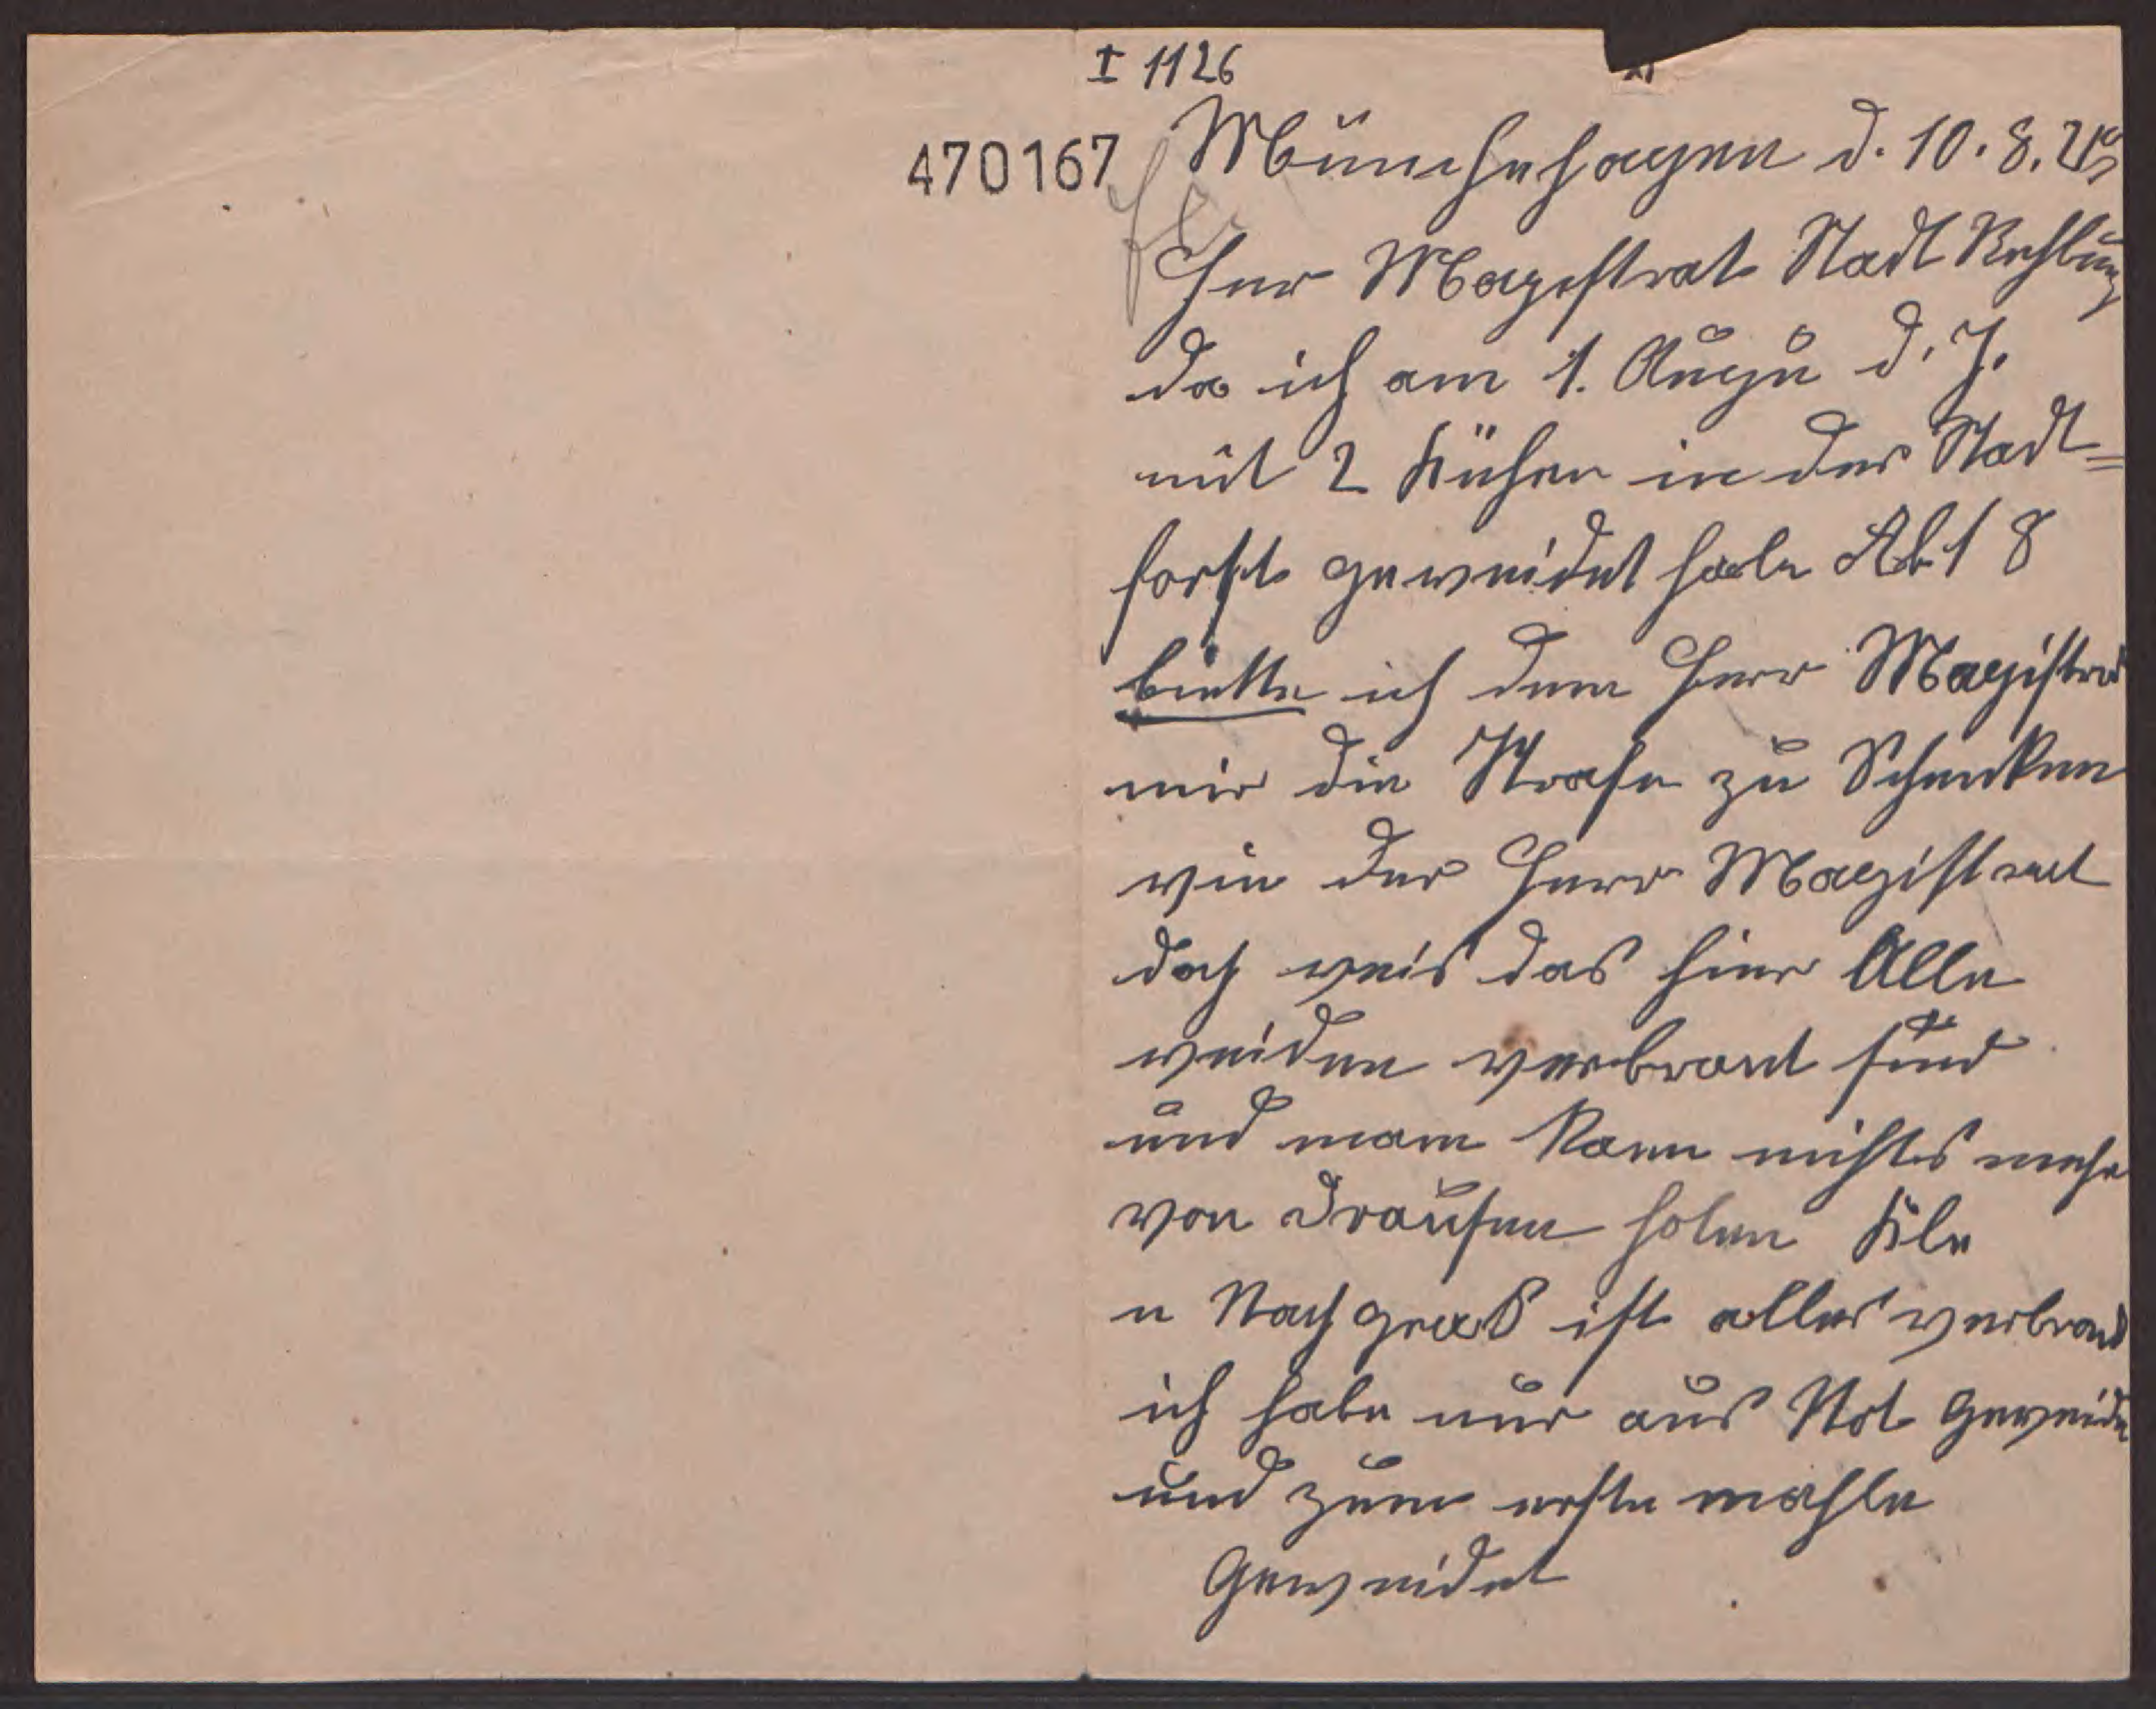 I 1126
470167
Münchehagen d. 10. 8. 
Herr Magestrat Stadt Rehburg
da ich am 1. Augu d. J.
mit 2 Kühen in der Stadt=
forst geweidet habe Abt 8
biette ich dem Herr Magistrat
mir die Strafe zu Schenken
wie der Herr Magistrat
doch weis das hier Alle
weiden verbrant sind
und mann kann nichts mehr
von drausen holen Kle
u Nachgraß ist alles verbrand
ich habe nur aus Not geweide
und zum erste mahle
Geweidet